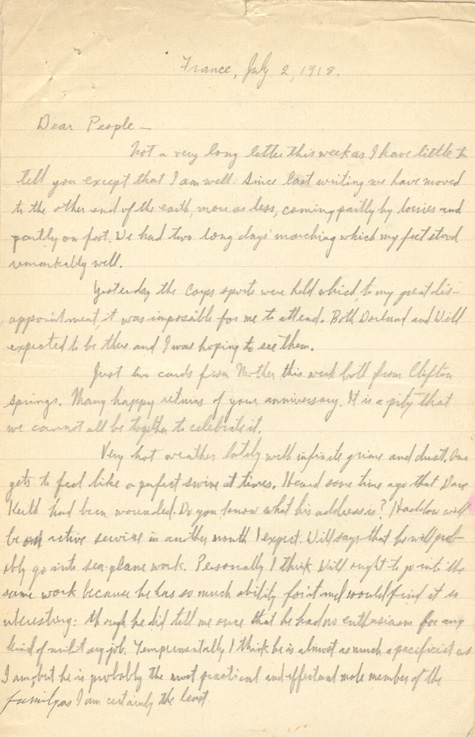 France, July 2, 1918.
Dear People —
Not a very long letter this week as I have little to
tell you except that I am well. Since last writing we have moved
to the other end of the earth, more or less, coming partly by lorries and
partly on foot. We had two long days' marching which my feet stood
remarkably well.
Yesterday the Corps sports were held which, to my great dis-
appointment, it was impossible for me to attend. Both Dorland and Will
expected to be there and I was hoping to see them.
Just two cards from Mother this week both from Clifton
Springs. Many happy returns of your anniversary. It is a pity that
we cannot all be together to celebrate it.
Very hot weather lately with infinite grime and dust. One
gets to feel like a perfect swine at times. Heard some time ago that Dave
Keith had been wounded. Do you know what his address is? Haddow will
be on active service in another month I expect. Will says that he will prob-
ably go into sea-plane work. Personally I think Will ought to go into the
same work because he has so much ability for it and would find it so
interesting: though he did tell me once that he had no enthusiasm for any
kind of military job. Temperamentally I think he is almost as much a pacificist as
I am but he is probably the most practical and efficient male member of the
family as I am certainly the least